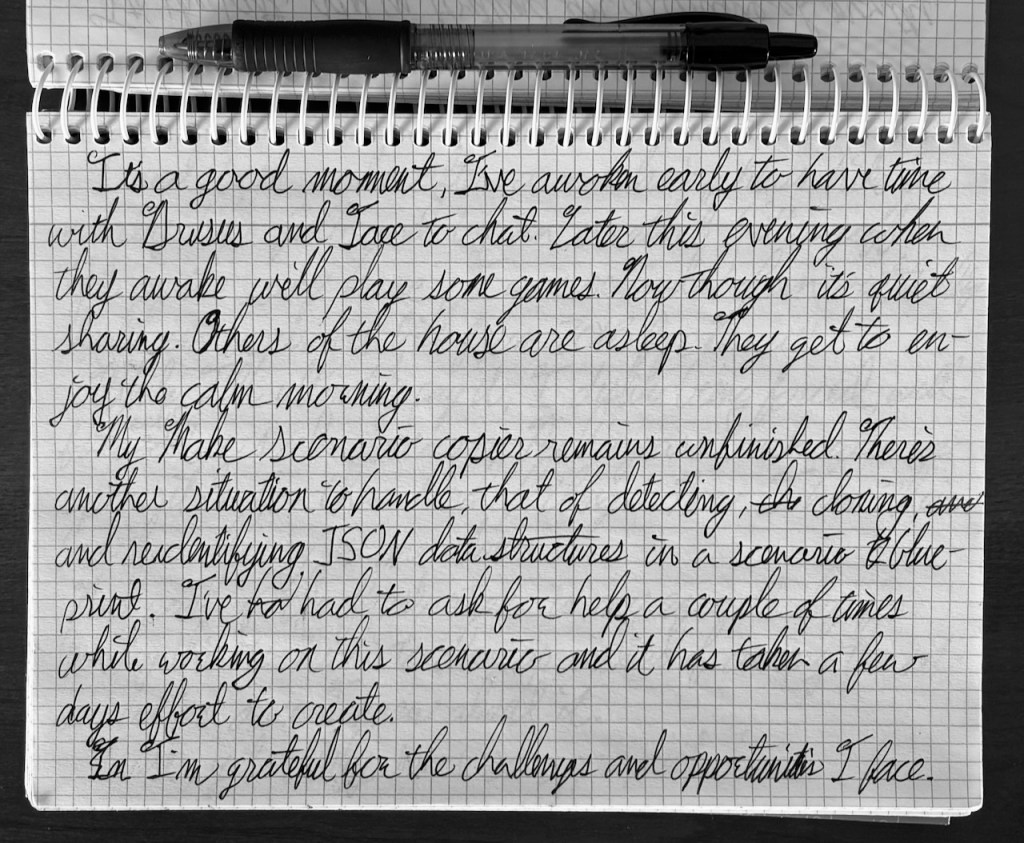 It's a good moment, I've awoken early to have time
with Drusus and Jace to chat. Later this evening when
they awake we'll play some games. Now though it's quiet
sharing. Others of the house are asleep. They get to en-
joy the calm morning.
My Make scenario copier remains unfinished. There's
another situation to handle, that of detecting, cloning,
and reidentifying JSON data structures in a scenario blue-
print. I've had to ask for help a couple of times
while working on this scenario and it has taken a few
days effort to create.
I'm grateful for the challenges and opportunities I face.